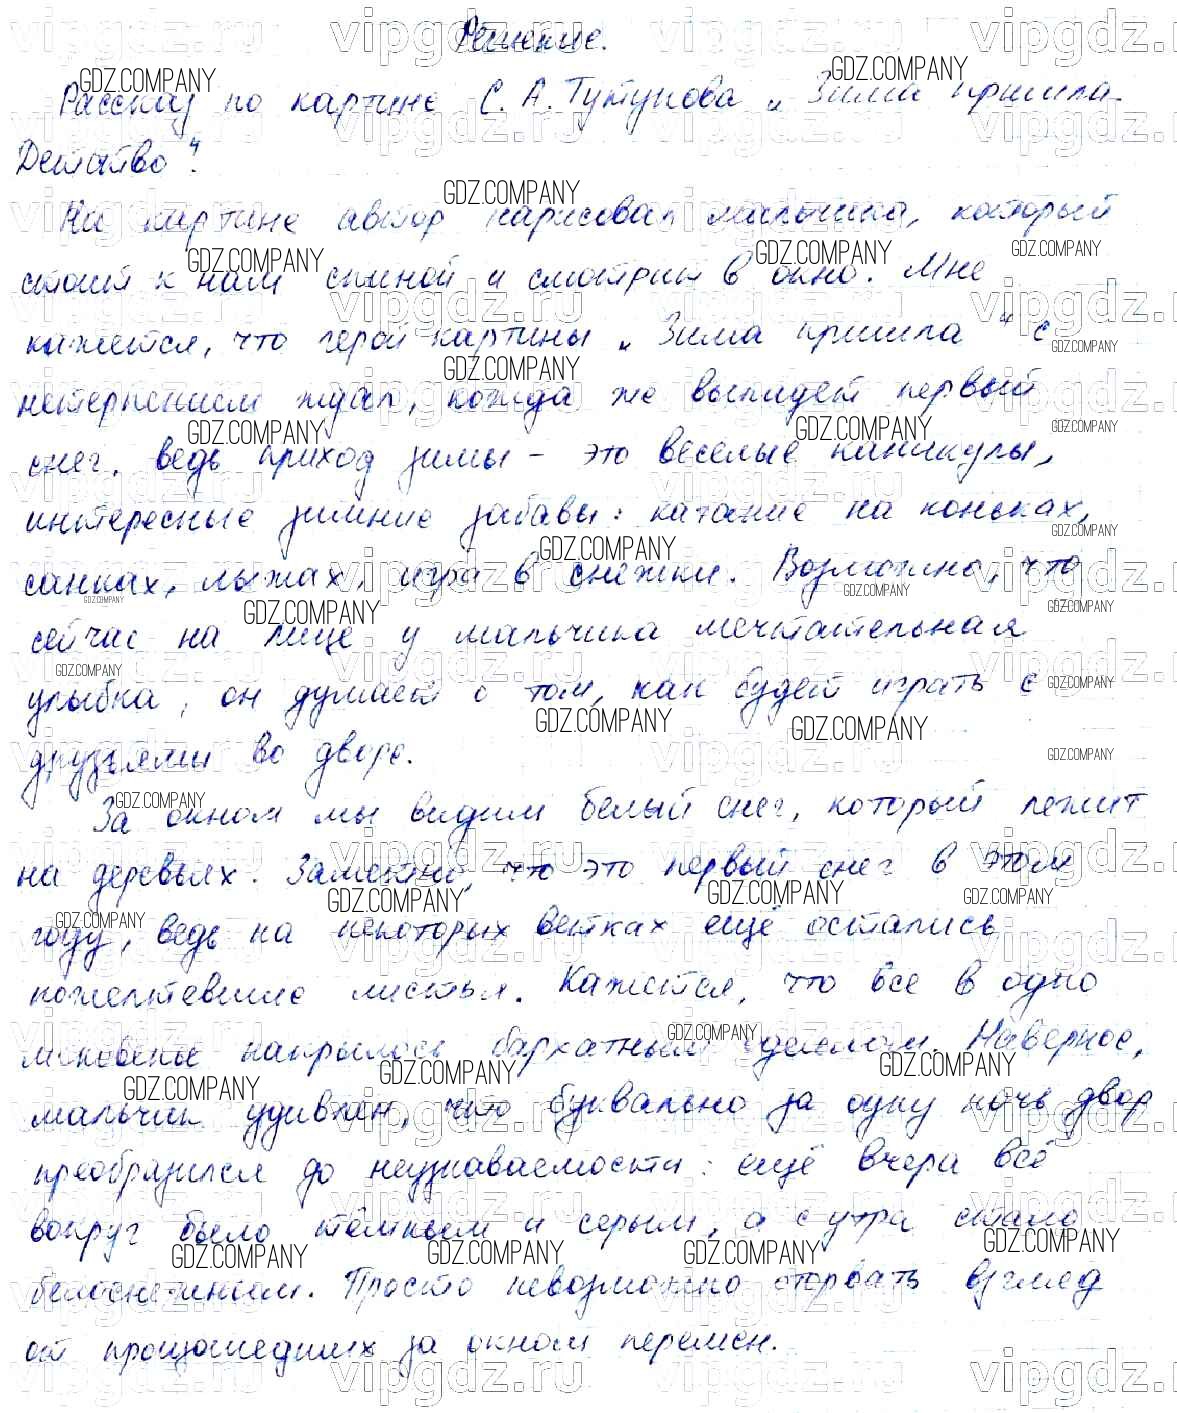 Решение.
Рассказ по картине С. А. Тутунова „Зима пришла.
Детство“.
На картине автор нарисовал мальчика, который
стоит к нам спиной и смотрит в окно. Мне
кажется, что герой картины „Зима пришла“ с
нетерпением ждал, когда же выпадет первый
снег, ведь приход зимы – это весёлые каникулы,
интересные зимние забавы: катание на коньках,
санках, лыжах, игра в снежки. Возможно, что
сейчас на лице у мальчика мечтательная
улыбка, он думает о том, как будет играть с
друзьями во дворе.
За окном мы видим белый снег, который лежит
на деревьях. Заметно, что это первый снег в этом
году, ведь на некоторых ветках ещё остались
пожелтевшие листья. Кажется, что все в одно
мгновенье накрылось бархатным одеялом. Наверное,
мальчик удивлен, что буквально за одну ночь двор
преобразился до неузнаваемости: ещё вчера всё
вокруг было тёмным и серым, а с утра стало
белоснежным. Просто невозможно оторвать взгляд
от произошедших за окном перемен.
vipgdz.ru
GDZ.COMPANY